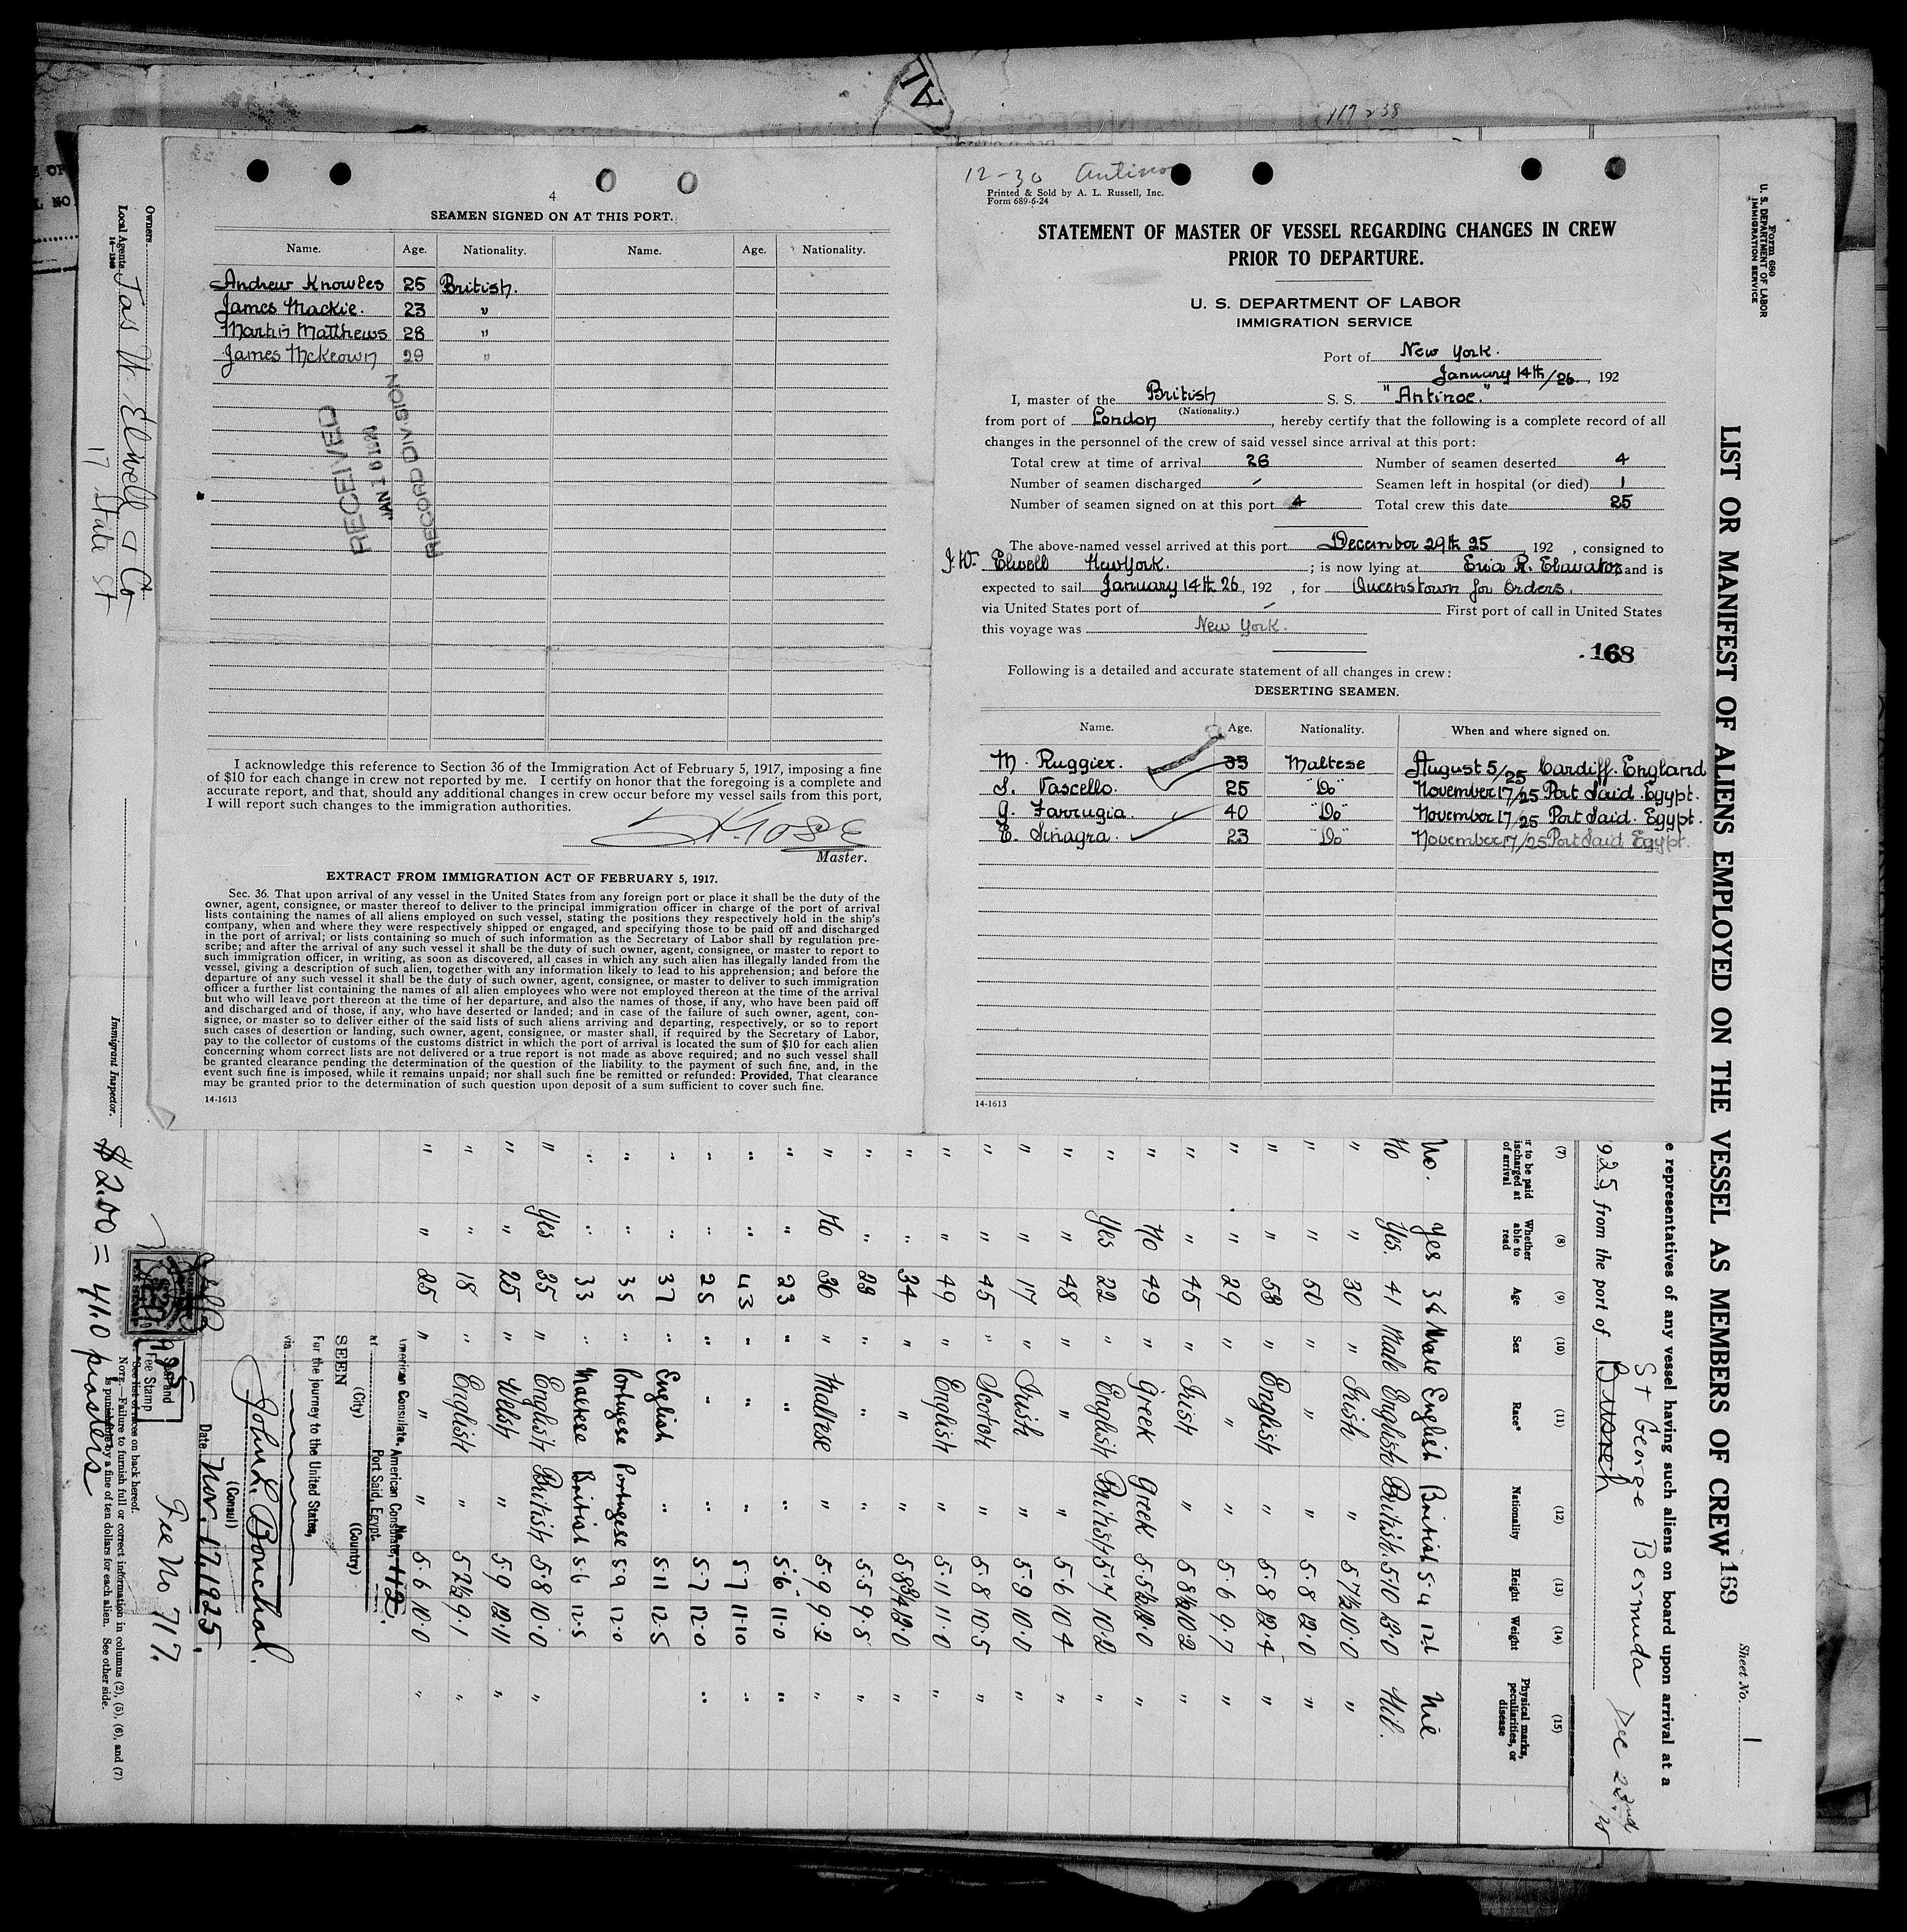 AL
117258
4
SEAMEN SIGNED ON AT THIS PORT.
Name. Age. Nationality. Name. Age. Nationality.
Andrew Knowles 25 British.
James Mackie. 23 "
Martin Matthews 28 "
James McKeown 29 "
RECEIVED
JAN 19 1926
RECORD DIVISION
I acknowledge this reference to Section 36 of the Immigration Act of February 5, 1917, imposing a fine
of $10 for each change in crew not reported by me. I certify on honor that the foregoing is a complete and
accurate report, and that, should any additional changes in crew occur before my vessel sails from this port,
I will report such changes to the immigration authorities.
Master.
EXTRACT FROM IMMIGRATION ACT OF FEBRUARY 5, 1917.
Sec. 36. That upon arrival of any vessel in the United States from any foreign port or place it shall be the duty of the
owner, agent, consignee, or master thereof to deliver to the principal immigration officer in charge of the port of arrival
lists containing the names of all aliens employed on such vessel, stating the positions they respectively hold in the ship's
company, when and where they were respectively shipped or engaged, and specifying those to be paid off and discharged
in the port of arrival; or lists containing so much of such information as the Secretary of Labor shall by regulation pre-
scribe; and after the arrival of any such vessel it shall be the duty of such owner, agent, consignee, or master to report to
such immigration officer, in writing, as soon as discovered, all cases in which any such alien has illegally landed from the
vessel, giving a description of such alien, together with any information likely to lead to his apprehension; and before the
departure of any such vessel it shall be the duty of such owner, agent, consignee, or master to deliver to such immigration
officer a further list containing the names of all alien employees who were not employed thereon at the time of the arrival
but who will leave port thereon at the time of her departure, and also the names of those, if any, who have been paid off
and discharged and of those, if any, who have deserted or landed; and in case of the failure of such owner, agent, con-
signee, or master so to deliver either of the said lists of such aliens arriving and departing, respectively, or so to report
such cases of desertion or landing, such owner, agent, consignee, or master shall, if required by the Secretary of Labor,
pay to the collector of customs of the customs district in which the port of arrival is located the sum of $10 for each alien
concerning whom correct lists are not delivered or a true report is not made as above required; and no such vessel shall
be granted clearance pending the determination of the question of the liability to the payment of such fine, and, in the
event such fine is imposed, while it remains unpaid; nor shall such fine be remitted or refunded: Provided, That clearance
may be granted prior to the determination of such question upon deposit of a sum sufficient to cover such fine.
14-1613
12-30 Antinoe
Printed & Sold by A. L. Russell, Inc.
Form 689-6-24
STATEMENT OF MASTER OF VESSEL REGARDING CHANGES IN CREW
PRIOR TO DEPARTURE.
U. S. DEPARTMENT OF LABOR
IMMIGRATION SERVICE
Port of New York.
January 14th/26., 192
I, master of the British S. S. "Antinoe."
(Nationality.)
from port of London, hereby certify that the following is a complete record of all
changes in the personnel of the crew of said vessel since arrival at this port:
Total crew at time of arrival 26 Number of seamen deserted 4
Number of seamen discharged - Seamen left in hospital (or died) 1
Number of seamen signed on at this port 4 Total crew this date 25
The above-named vessel arrived at this port December 29th 25, 192 , consigned to
J. W. Elwell New York. ; is now lying at Erie R. Elavator and is
expected to sail January 14th 26, 192 , for Queenstown for Orders.
via United States port of - First port of call in United States
this voyage was New York.
168
Following is a detailed and accurate statement of all changes in crew:
DESERTING SEAMEN.
Name. Age. Nationality. When and where signed on.
M. Ruggier. 33 Maltese August 5/25 Cardiff. England
S. Vascello. 25 "Do" November 17/25 Port Said. Egypt.
G. Farrugia. 40 "Do" November 17/25 Port Said. Egypt.
E. Sinagra. 23 "Do" November 17/25 Port Said Egypt.
14-1613
Form 680
U. S. DEPARTMENT OF LABOR
IMMIGRATION SERVICE
LIST OR MANIFEST OF ALIENS EMPLOYED ON THE VESSEL AS MEMBERS OF CREW 169
Sheet No. 1
e representatives of any vessel having such aliens on board upon arrival at a
St George Bermuda Dec 22nd/25
925, from the port of
(7) (8) (9) (10) (11) (12) (13) (14) (15)
r to be paid
ischarged at
of arrival
Whether
able to
read
Age
Sex
Race*
Nationality
Height
Weight
Physical marks,
peculiarities, or
disease
No. Yes 38 Male English British 5·4 12·1 Nil
No Yes. 41 Male English British. 5·10 13·0 Nil.
" " 30 " Irish " 5 7½ 10·0 "
" " 50 " " " 5·8 12·0 "
" " 53 " English " 5·8 12·4 "
" " 29 " " " 5·6 9·7 "
" " 45 " Irish " 5 8½ 10·2 "
" No 49 " Greek Greek 5·5½ 12·0 "
" Yes 22 " English British 5·7 10·2 "
" " 48 " " " 5·6 10 4 "
" " 17 " Irish " 5·9 10·0 "
" " 45 " Scotch " 5·8 10·5 "
" " 49 " English " 5·11 11·0 "
" " 34 " " " 5·8¾ 12·0 "
" " 23 " " " 5·5 9·8 "
" No 36 " Maltese " 5·9 9·2 "
" " 23 " " " 5·6 11·0 "
" " 43 " " " 5·7 11·10 "
" " 25 " " " 5·7 12·0 "
" " 37 " English " 5·11 12·5
" " 35 " Portugese Portugese 5·9 12·0
" " 33 " Maltese British 5·6 12·5
" Yes 35 " English British 5·8 10·0 "
" " 25 " Welsh " 5·9 12·11 "
" " 18 " English " 5 2½ 9·1 "
" " 25 " " " 5·6 10·0 "
No. 412.
American Consulate, American Consulate,
at Port Said, Egypt.
(City) (Country)
SEEN
For the journey to the United States,
via
John L. Bouchal.
(Consul)
Date Nov. 17, 1925.
Fee No 717.
Fee Stamp
*See list of races on back hereof.
NOTE.—Failure to furnish full or correct information in columns (2), (5), (6), and (7)
is punishable by a fine of ten dollars for each alien. See other side.
$2.00 = 41.0 piasters
Owners
Local Agents Jas W. Elwell & Co
17 State St
Immigrant Inspector.